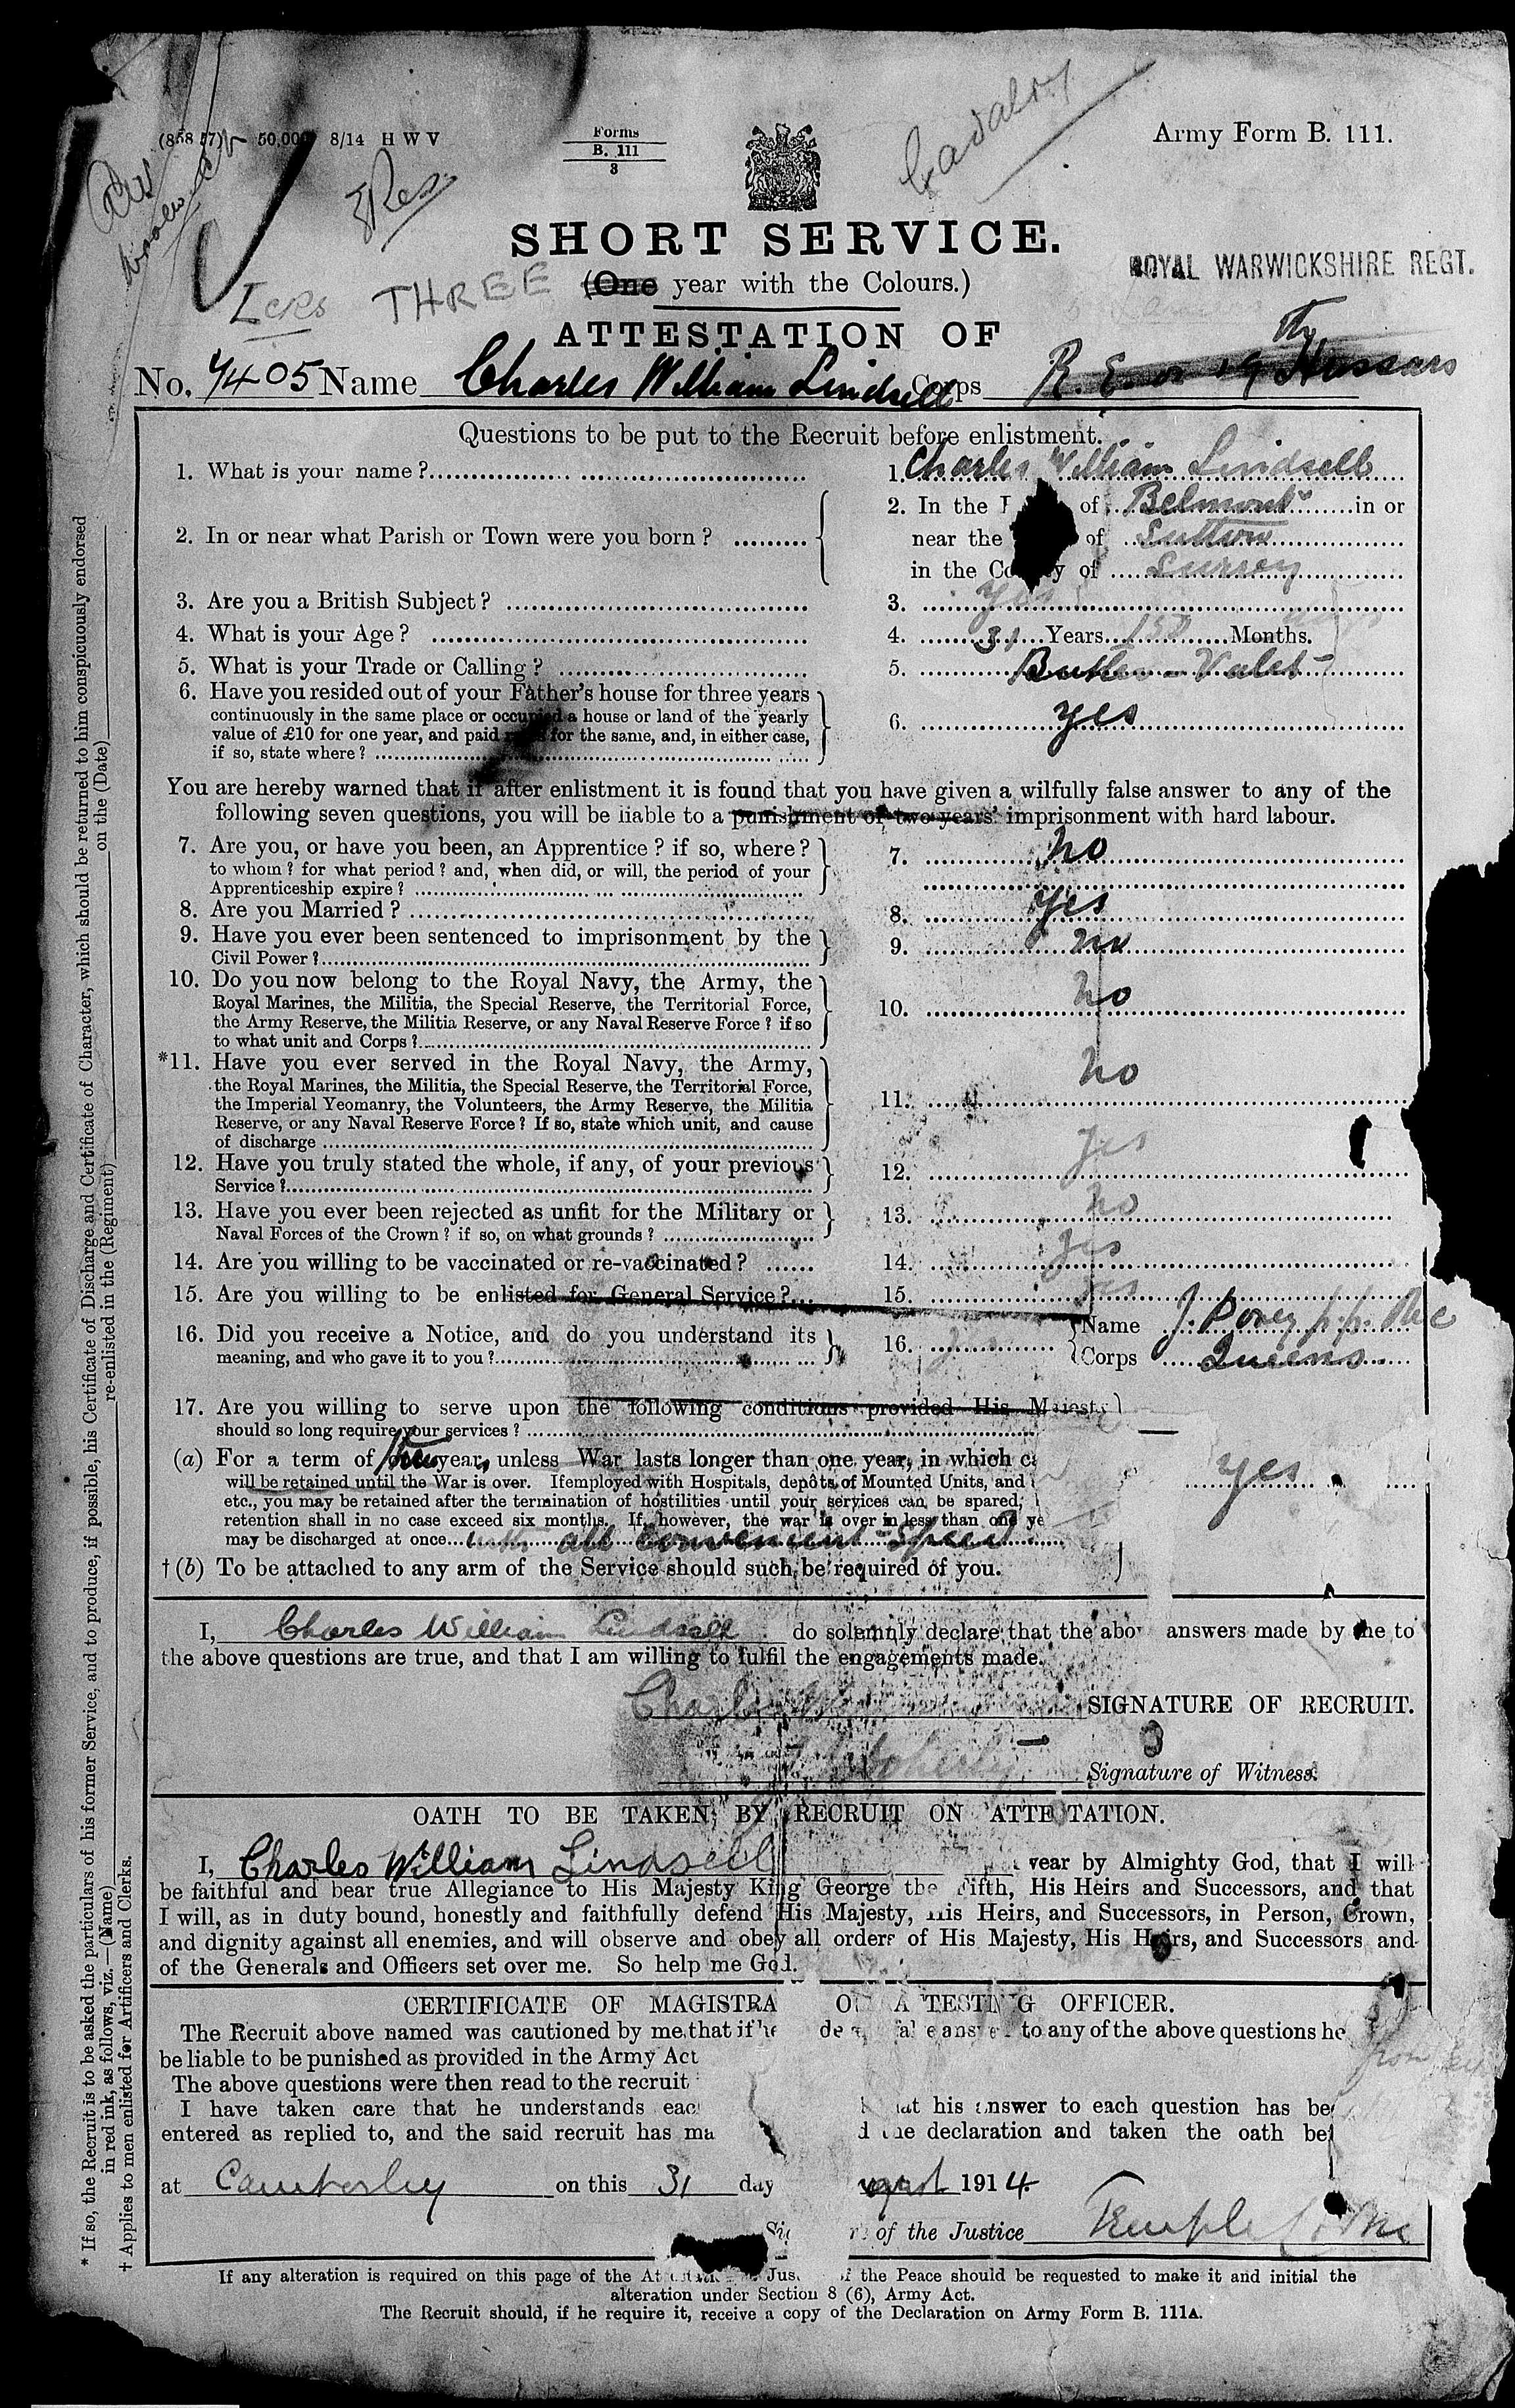 (858 57) 50,000 8/14 H W V
Forms
B. 111
3
Army Form B. 111.
Cavalry
Res.
SHORT SERVICE.
THREE (One year with the Colours.)
ROYAL WARWICKSHIRE REGT.
ATTESTATION OF
No. 7405 Name Charles William Lindsell Corps R.E. or 19th Hussars
Questions to be put to the Recruit before enlistment.
1. What is your name? 1. Charles William Lindsell
2. In or near what Parish or Town were you born? 2. In the of Belmont in or
near the of Sutton
in the County of Surrey
3. Are you a British Subject? 3. Yes
4. What is your Age? 4. 31 Years 150 Months. days
5. What is your Trade or Calling? 5. Butler - Valet
6. Have you resided out of your Father's house for three years
continuously in the same place or occupied a house or land of the yearly
value of £10 for one year, and paid for the same, and, in either case,
if so, state where? 6. yes
You are hereby warned that if after enlistment it is found that you have given a wilfully false answer to any of the
following seven questions, you will be liable to a punishment of two years' imprisonment with hard labour.
7. Are you, or have you been, an Apprentice? if so, where?
to whom? for what period? and, when did, or will, the period of your
Apprenticeship expire? 7. no
8. Are you Married? 8. Yes
9. Have you ever been sentenced to imprisonment by the
Civil Power? 9. no
10. Do you now belong to the Royal Navy, the Army, the
Royal Marines, the Militia, the Special Reserve, the Territorial Force,
the Army Reserve, the Militia Reserve, or any Naval Reserve Force? if so
to what unit and Corps? 10. no
*11. Have you ever served in the Royal Navy, the Army,
the Royal Marines, the Militia, the Special Reserve, the Territorial Force,
the Imperial Yeomanry, the Volunteers, the Army Reserve, the Militia
Reserve, or any Naval Reserve Force? If so, state which unit, and cause
of discharge 11. no
12. Have you truly stated the whole, if any, of your previous
Service? 12. yes
13. Have you ever been rejected as unfit for the Military or
Naval Forces of the Crown? if so, on what grounds? 13. no
14. Are you willing to be vaccinated or re-vaccinated? 14. yes
15. Are you willing to be enlisted for General Service? 15. yes
16. Did you receive a Notice, and do you understand its
meaning, and who gave it to you? 16. yes Name J. Povey
Corps Queens
17. Are you willing to serve upon the following conditions provided His Majesty
should so long require your services?
(a) For a term of three years, unless War lasts longer than one year, in which
will be retained until the War is over. If employed with Hospitals, depôts of Mounted Units, and
etc., you may be retained after the termination of hostilities until your services can be spared,
retention shall in no case exceed six months. If, however, the war is over in less than one
may be discharged at once with all convenient speed
yes
† (b) To be attached to any arm of the Service should such be required of you.
I, Charles William Lindsell do solemnly declare that the above answers made by me to
the above questions are true, and that I am willing to fulfil the engagements made.
Charles SIGNATURE OF RECRUIT.
Signature of Witness.
OATH TO BE TAKEN BY RECRUIT ON ATTESTATION.
I, Charles William Lindsell swear by Almighty God, that I will
be faithful and bear true Allegiance to His Majesty King George the Fifth, His Heirs and Successors, and that
I will, as in duty bound, honestly and faithfully defend His Majesty, His Heirs, and Successors, in Person, Crown,
and dignity against all enemies, and will observe and obey all orders of His Majesty, His Heirs, and Successors and
of the Generals and Officers set over me. So help me God.
CERTIFICATE OF MAGISTRATE OR ATTESTING OFFICER.
The Recruit above named was cautioned by me that if he made any false answer to any of the above questions he
be liable to be punished as provided in the Army Act
The above questions were then read to the recruit
I have taken care that he understands each that his answer to each question has been
entered as replied to, and the said recruit has made the declaration and taken the oath
at Camberley on this 31 day August 1914
of the Justice Temple
If any alteration is required on this page of the Attestation, a Justice of the Peace should be requested to make it and initial the
alteration under Section 8 (6), Army Act.
The Recruit should, if he require it, receive a copy of the Declaration on Army Form B. 111A.
* If so, the Recruit is to be asked the particulars of his former Service, and to produce, if possible, his Certificate of Discharge and Certificate of Character, which should be returned to him conspicuously endorsed
in red ink, as follows, viz.—(Name) re-enlisted in the (Regiment) on the (Date)
† Applies to men enlisted for Artificers and Clerks.